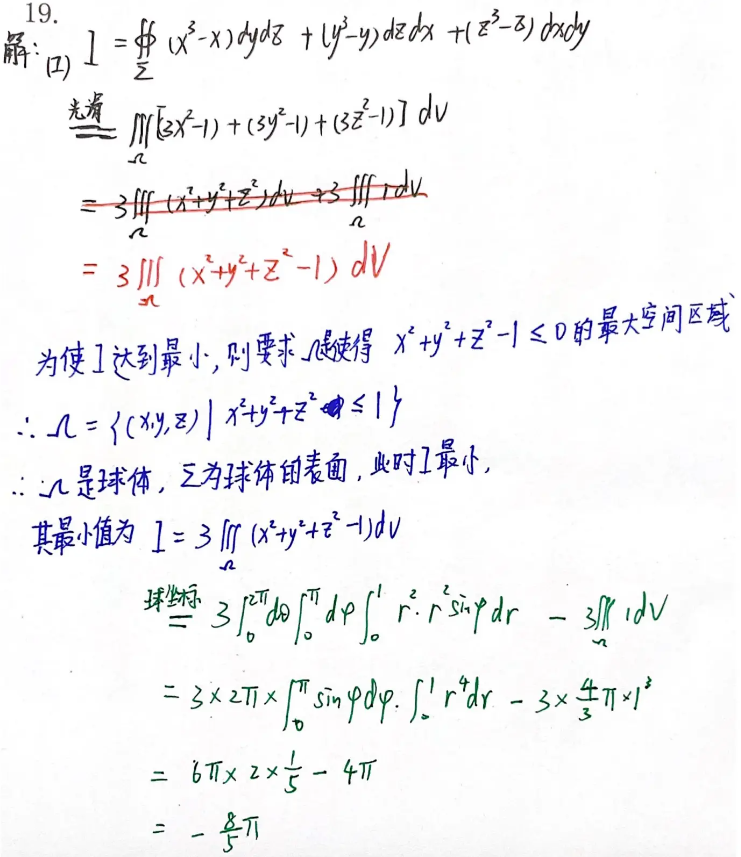 19.
解: (I) I = ∯_Σ (x³-x)dydz + (y³-y)dzdx + (z³-z)dxdy
光滑 = ∭_Ω [3x²-1)+(3y²-1)+(3z²-1)] dv
= 3∭_Ω (x²+y²+z²)dv +3∭_Ω 1dv
= 3∭_Ω (x²+y²+z²-1) dV
为使I达到最小,则要求Ω是使得 x²+y²+z²-1≤0的最大空间区域
∴ Ω = {(x,y,z) | x²+y²+z² ≤1}
∴ Ω是球体, Σ为球体的表面, 此时I最小,
其最小值为 I = 3∭_Ω (x²+y²+z²-1)dv
球坐标 = 3∫₀^{2π}dθ∫₀^π dφ∫₀¹ r²·r²sinφdr - 3∭_Ω 1dV
= 3×2π×∫₀^π sinφdφ·∫₀¹ r⁴dr - 3×4/3π×1³
= 6π×2×1/5 - 4π
= -8/5π